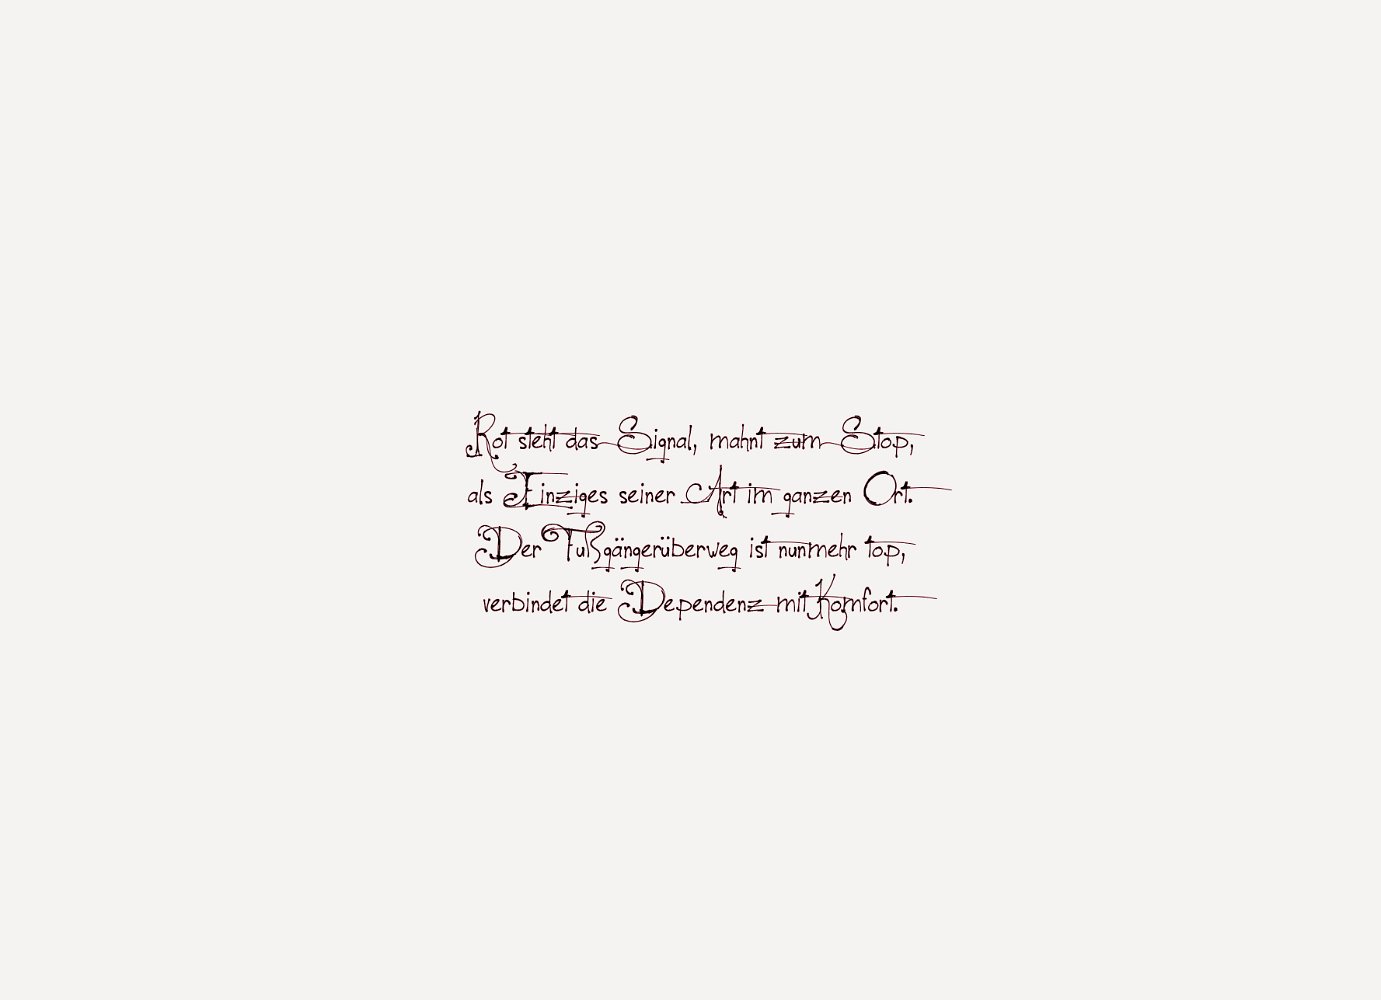 Rot steht das Signal, mahnt zum Stop,
als Einziges seiner Art im ganzen Ort.
Der Fußgängerüberweg ist nunmehr top,
verbindet die Dependenz mit Komfort.